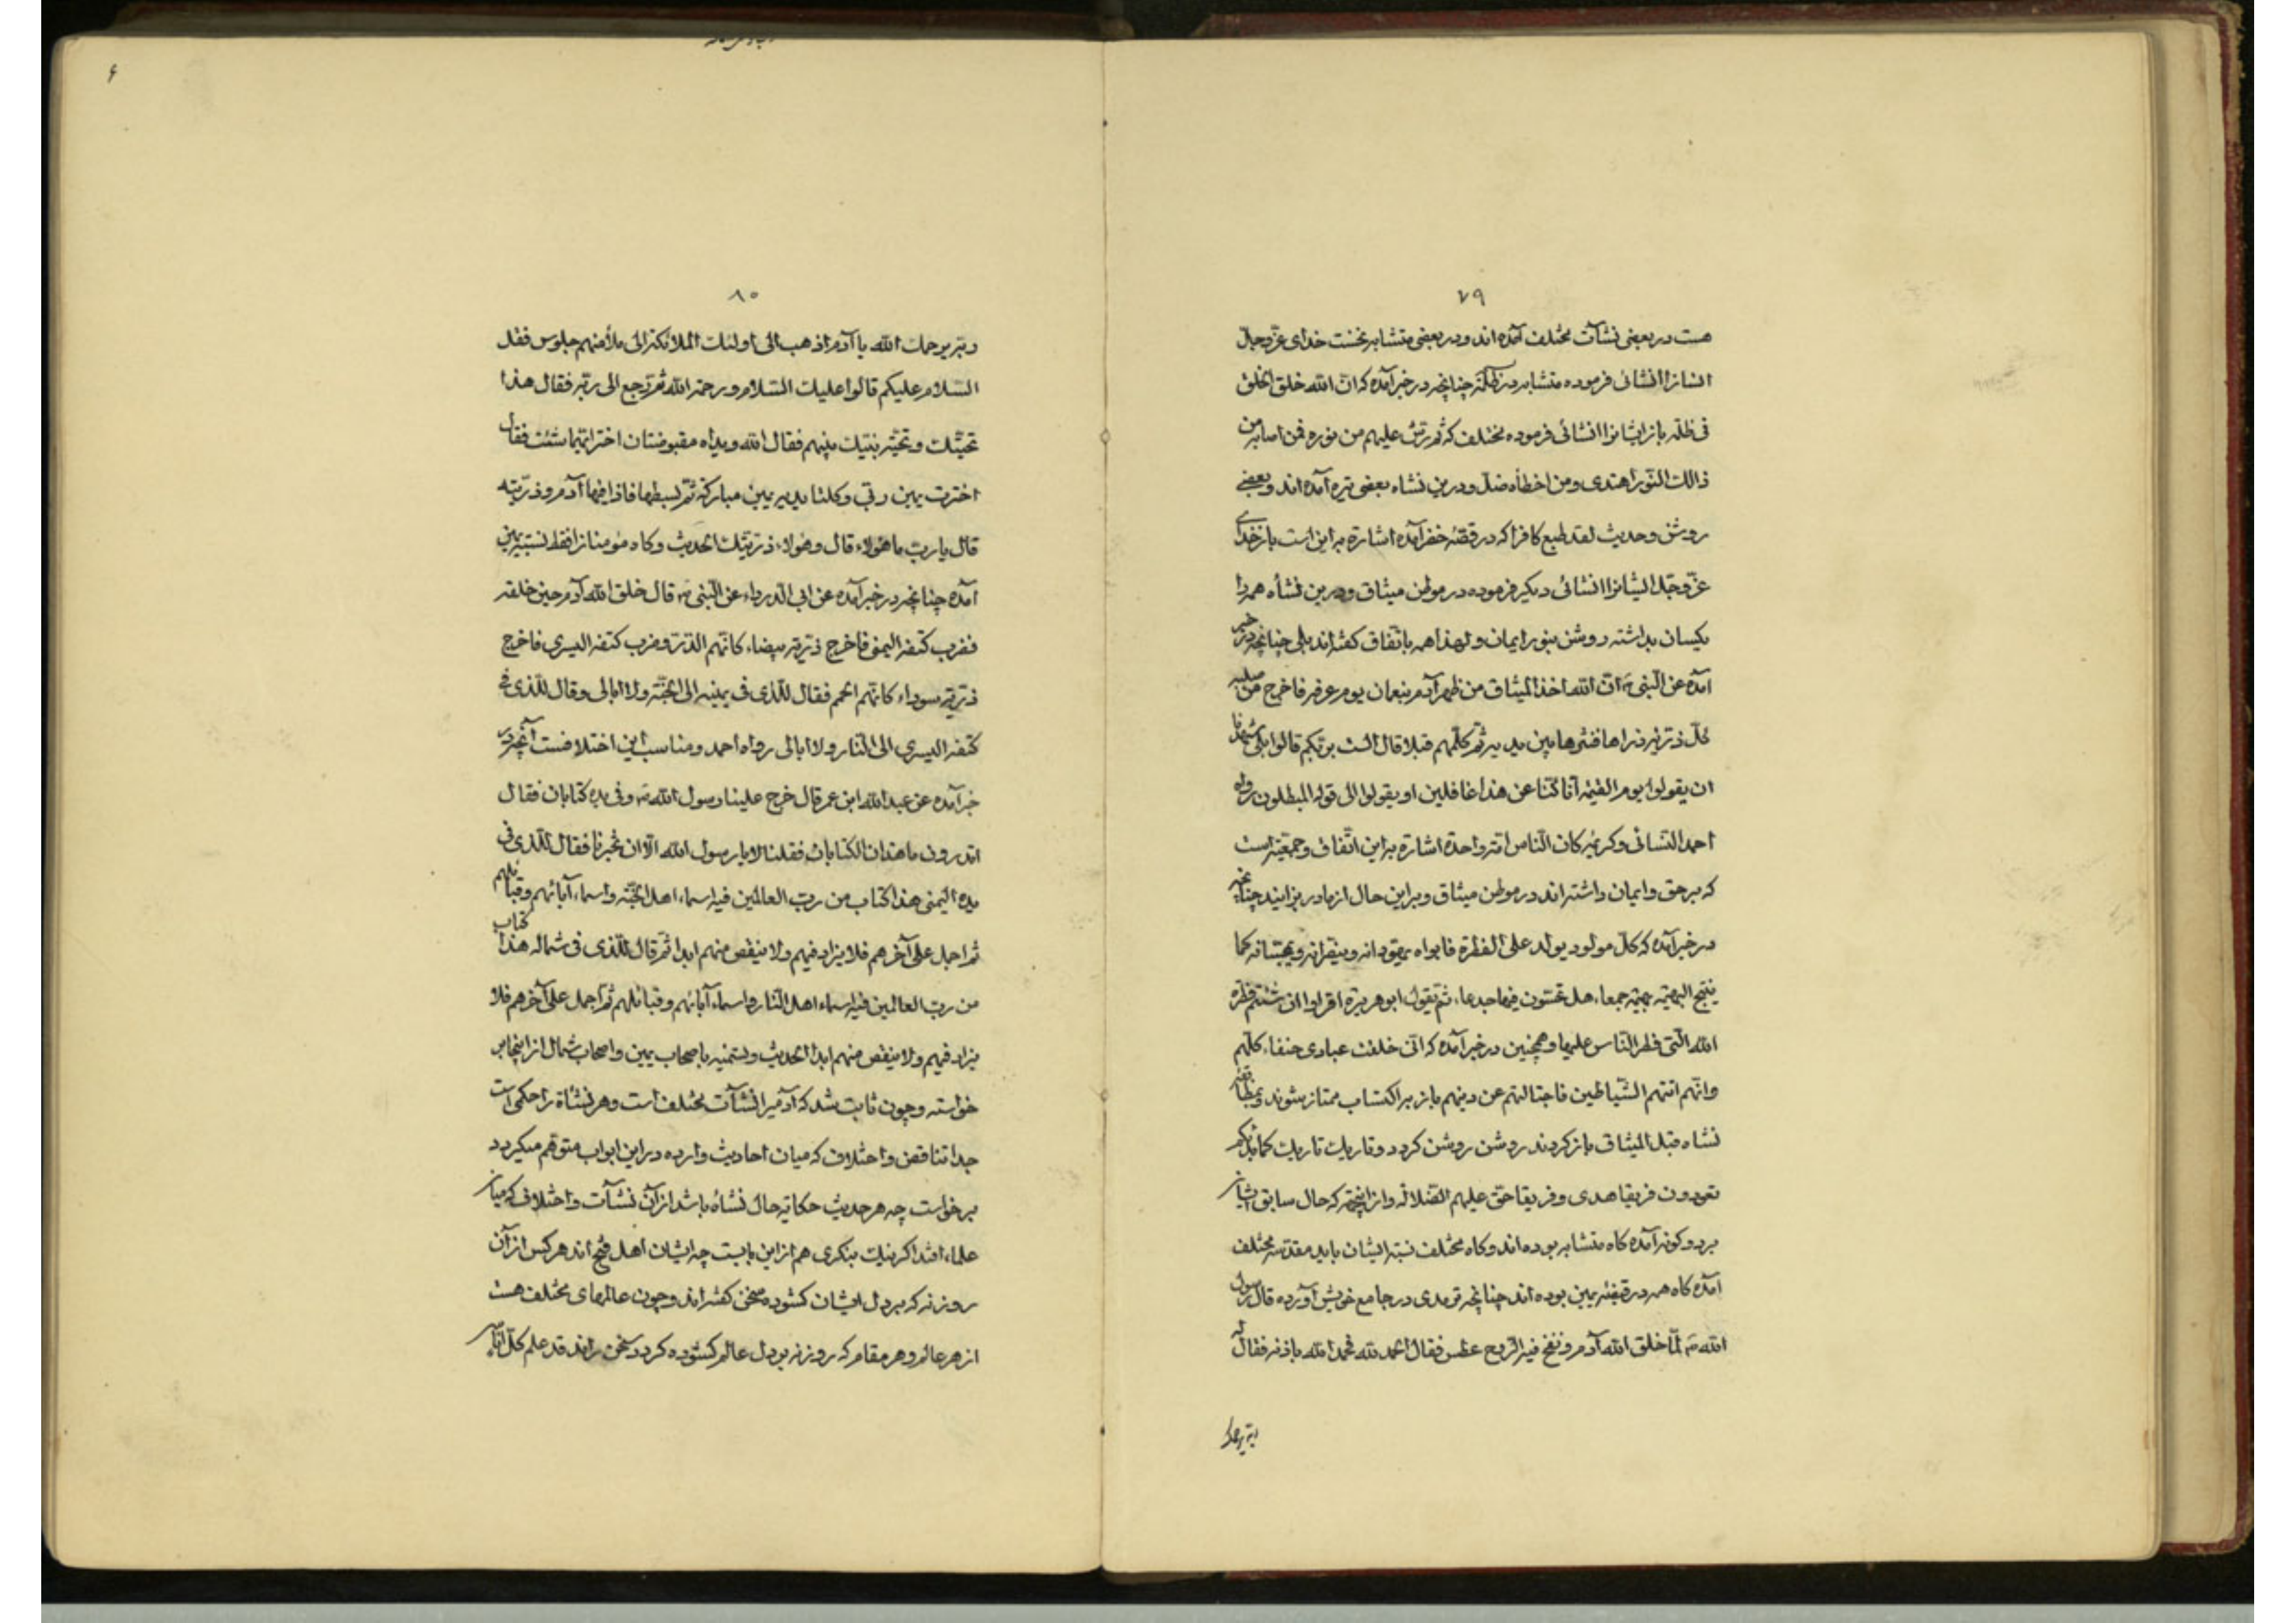 ٧٩
هست در بعضی نشآت مختلف آمده‌اند و در بعضی متشابه نخست خدای عزّ و جلّ
انسانرا انشائی فرموده متشابه در ظلمة چنانچه در خبر آمده که انّ الله خلق الخلق
فی ظلمه باز ایشانرا انشائی فرموده مختلف که ثم رشّ علیهم من نوره فمن اصابه من
ذالک النّور اهتدی ومن اخطأه ضلّ ودرین نشاه بعضی تیره آمده اند و بعضی
روشن وحدیث لقد طبع کافرا که در قصّه خضر آمده اشارة براین است باز خدای
عزّ وجلّ ایشانرا انشائی دیگر فرموده در موطن میثاق ودرین نشأه همه را
یکسان بداشته روشن بنور ایمان ولهذا همه باتّفاق گفته‌اند بلی چنانچه در خبر
آمده عن النّبی ص انّ الله اخذ المیثاق من ظهر آدم بنعمان یوم عرفه فاخرج من صلبه
کلّ ذریّة ذراها فنثرها بین یدیه ثمّ کلّمهم قبلا قال الست بربّکم قالوا بلی شهدنا
ان یقولوا یوم القیمة انّا کنّا عن هذا غافلین او یقولوا الی قوله المبطلون رواه
احمد النسائی وکریمه کان النّاس امّة واحدة اشارة براین اتّفاق وجمعیّة است
که بر حق وایمان داشته‌اند در موطن میثاق وبراین حال از مادر بزایند چنانچه
در خبر آمده که کلّ مولود یولد علی الفطرة فابواه یهودانه وینصرانه ویمجسانه کما
ینتج البهیمة بهیمة جمعاء هل تحسّون فیها جدعاء ثم یقول ابو هریرة اقراوا ان شئتم فطرة
الله الّتی فطر النّاس علیها وهمچنین در خبر آمده که انّی خلقت عبادی حنفاء کلّهم
وانّهم اتتهم الشّیاطین فاجتالتهم عن دینهم باز براکتساب ممتاز شوند وبمطابقه
نشاه قبل المیثاق باز گردند روشن روشن گردد وتاریک تاریک کما بدأکم
تعودون فریقا هدی وفریقا حقّ علیهم الضّلالة واز اینجهة که حال سابق ایشان
بردو گونه آمده گاه متشابه بوده‌اند وگاه مختلف نسبة ایشان باید مقدّسه مختلف
آمده گاه همه در قبضه یمین بوده اند چنانچه ترمدی در جامع خویش آورده قال رسول
الله ص لمّا خلق الله آدم ونفخ فیه الرّوح عطس فقال الحمد لله فحمد الله باذنه فقال له
ربّه یرحمک
٨٠
ربّه یرحمک الله یا آدم اذهب الی اولئک الملائکة الی ملأ منهم جلوس فقل
السّلام علیکم قالوا علیک السّلام ورحمة الله ثمّ رجع الی ربّه فقال هذا
تحیّتک وتحیّة بنیک بینهم فقال الله ویداه مقبوضتان اختر ایّهما شئت فقال
اخترت یمین ربّی وکلتا یدیه یمین مبارکة ثمّ بسطها فاذا فیها آدم وذرّیته
قال یاربّ ما هؤلاء قال وهؤلاء ذریّتک الحدیث وگاه مؤمنانرا فقط نسبة بیمین
آمده چنانچه در خبر آمده عن ابی الدّرداء عن النّبی ص قال خلق الله آدم حین خلقه
فضرب کتفه الیمنی فاخرج ذرّیّة بیضاء کانّهم الذّر وضرب کتفه الیسری فاخرج
ذرّیّة سوداء کانّهم الحمم فقال للّذی فی یمینه الی الجنّة ولا ابالی وقال للّذی فی
کتفه الیسری الی النّار ولا ابالی رواه احمد ومناسب این اختلافست آنچه در
خبر آمده عن عبد الله ابن عمر قال خرج علینا رسول الله ص وفی یده کتابان فقال
اتدرون ما هذان الکتابان فقلنا لا یارسول الله الّا ان تخبرنا فقال للّذی فی
یده الیمنی هذا کتاب من ربّ العالمین فیه اسماء اهل الجنّة واسماء آبائهم وقبائلهم
ثم اجمل علی آخرهم فلا یزاد فیهم ولا ینقص منهم ابدا ثمّ قال للّذی فی شماله هذا کتاب
من ربّ العالمین فیه اسماء اهل النّار واسماء آبائهم وقبائلهم ثمّ اجمل علی آخرهم فلا
یزاد فیهم ولا ینقص منهم ابدا الحدیث وتسمیه باصحاب یمین واصحاب شمال از اینجا بر
خواسته وچون ثابت شد که آدمیرا نشآت مختلف است وهر نشأة را حکمی است
جدا تناقض واختلاف که میان احادیث وارده دراین ابواب متوهّم میگردد
برخواست چه هر حدیث حکایة حال نشأه باشد از آن نشآت واختلاف که میان
علماء افتد اگر نیک بنگری هم از این بابست چه ایشان اهل فتح اند هر کس از آن
روزنه که بر دل ایشان گشوده سخن گفته‌اند وچون عالمهای مختلف هست
از هر عالم وهر مقام که روزنه بر دل عالم گشوده گردد سخن راند قد علم کلّ اناس